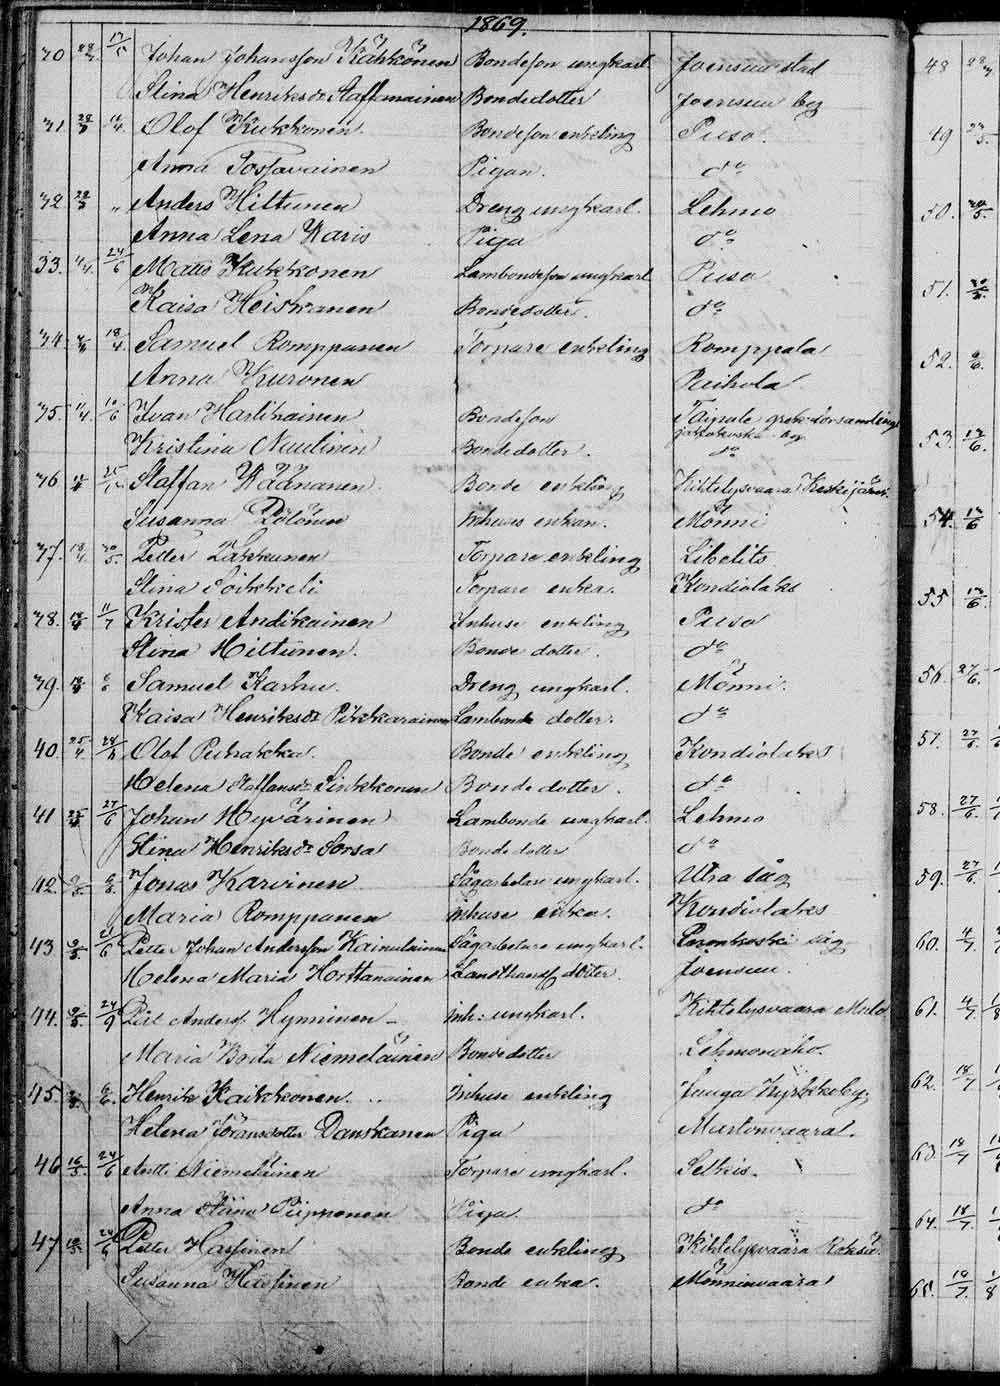 1869.
30 28/3 17/5 Johan Johansson Kähkönen Bondeson ungkarl. Joensuu stad
Stina Henriksdr Staffanainen Bondedotter Joensuu by
31 28/3 11/4 Olof Kukkonen. Bondeson enkling Puso.
Anna Tossavainen Pigan. do
32 28/3 " Anders Hiltunen Dreng ungkarl. Lehmo
Anna Lena Waris Piga do
33. 4/4 24/6 Matts Kukkonen Lambondeson ungkarl Puso
Kaisa Heiskanen Bondedotter. do
34 18/4 Samuel Romppanen Torpare enkling Romppala
Anna Kuronen Paihola
35. 11/4 10/6 Ivan Hartikainen Bondeson Taipale grek. församling
Kristina Nuutinen Bondedotter. do
36 Staffan Väänänen Bonde enkling Kihtelysvaara Keskijärvi.
Susanna Pölönen Inhuses enkan. Mönni
37. 18/4 30/5. Petter Lakkunen Torpare enkling Libelits
Stina Torpare enka. Kondiolaks
38. 18/4 11/7 Krister Andikainen Inhuse enkling Puso
Stina Hiltunen. Bonde dotter. do
39. 18/4 Samuel Karhu. Dreng ungkarl. Mönni.
Kaisa Henriksdr Pikkarainen Lambonde dotter. do
40. 25/4 Olof Puhakka Bonde enkling Kondiolaks
Helena Staffansdr Sirkkonen Bondedotter. do
41 25/4 27/6 Johan Hyvärinen Lambonde ungkarl. Lehmo
Stina Henriksdr Sorsa Bondedotter do
42. Jonas Karvinen Sågarbetare ungkarl. Utra såg
Maria Romppanen inhuse enka. Kondiolaks
43 9/5. 21/6 Petter Johan Andersson Kainulainen Sågarbetare ungkarl. såg
Helena Maria Horttanainen Landthansf dotter Joensuu.
44. 9/5. 24/9 Anderss. Hynninen inh: ungkarl. Kihtelysvaara Mulo
Maria Brita Niemeläinen Bondedotter Lehmonaho.
45. 6/6. Henrik Kaikkonen. Inhuse enkling Juuga Kyrkkoby.
Helena Göransdotter Danskanen Piga Martonvaara.
46 16/5. 24/6 Antti Niemeläinen Torpare ungkarl. Selkis.
Anna Stina Piipponen Piga. do
47 24/6 Petter Hassinen Bonde enkling Kihtelysvaara
Susanna Hassinen Bonde enka. Mönninvaara
48
49 23/5.
50.
51.
52. 6/6.
53. 13/6.
54. 13/6
55 13/6.
56. 27/6.
57. 27/6.
58. 27/6.
59. 27/6.
60. 4/7.
61. 4/7.
62. 18/7
63. 18/7
64. 18/7.
65. 18/7.